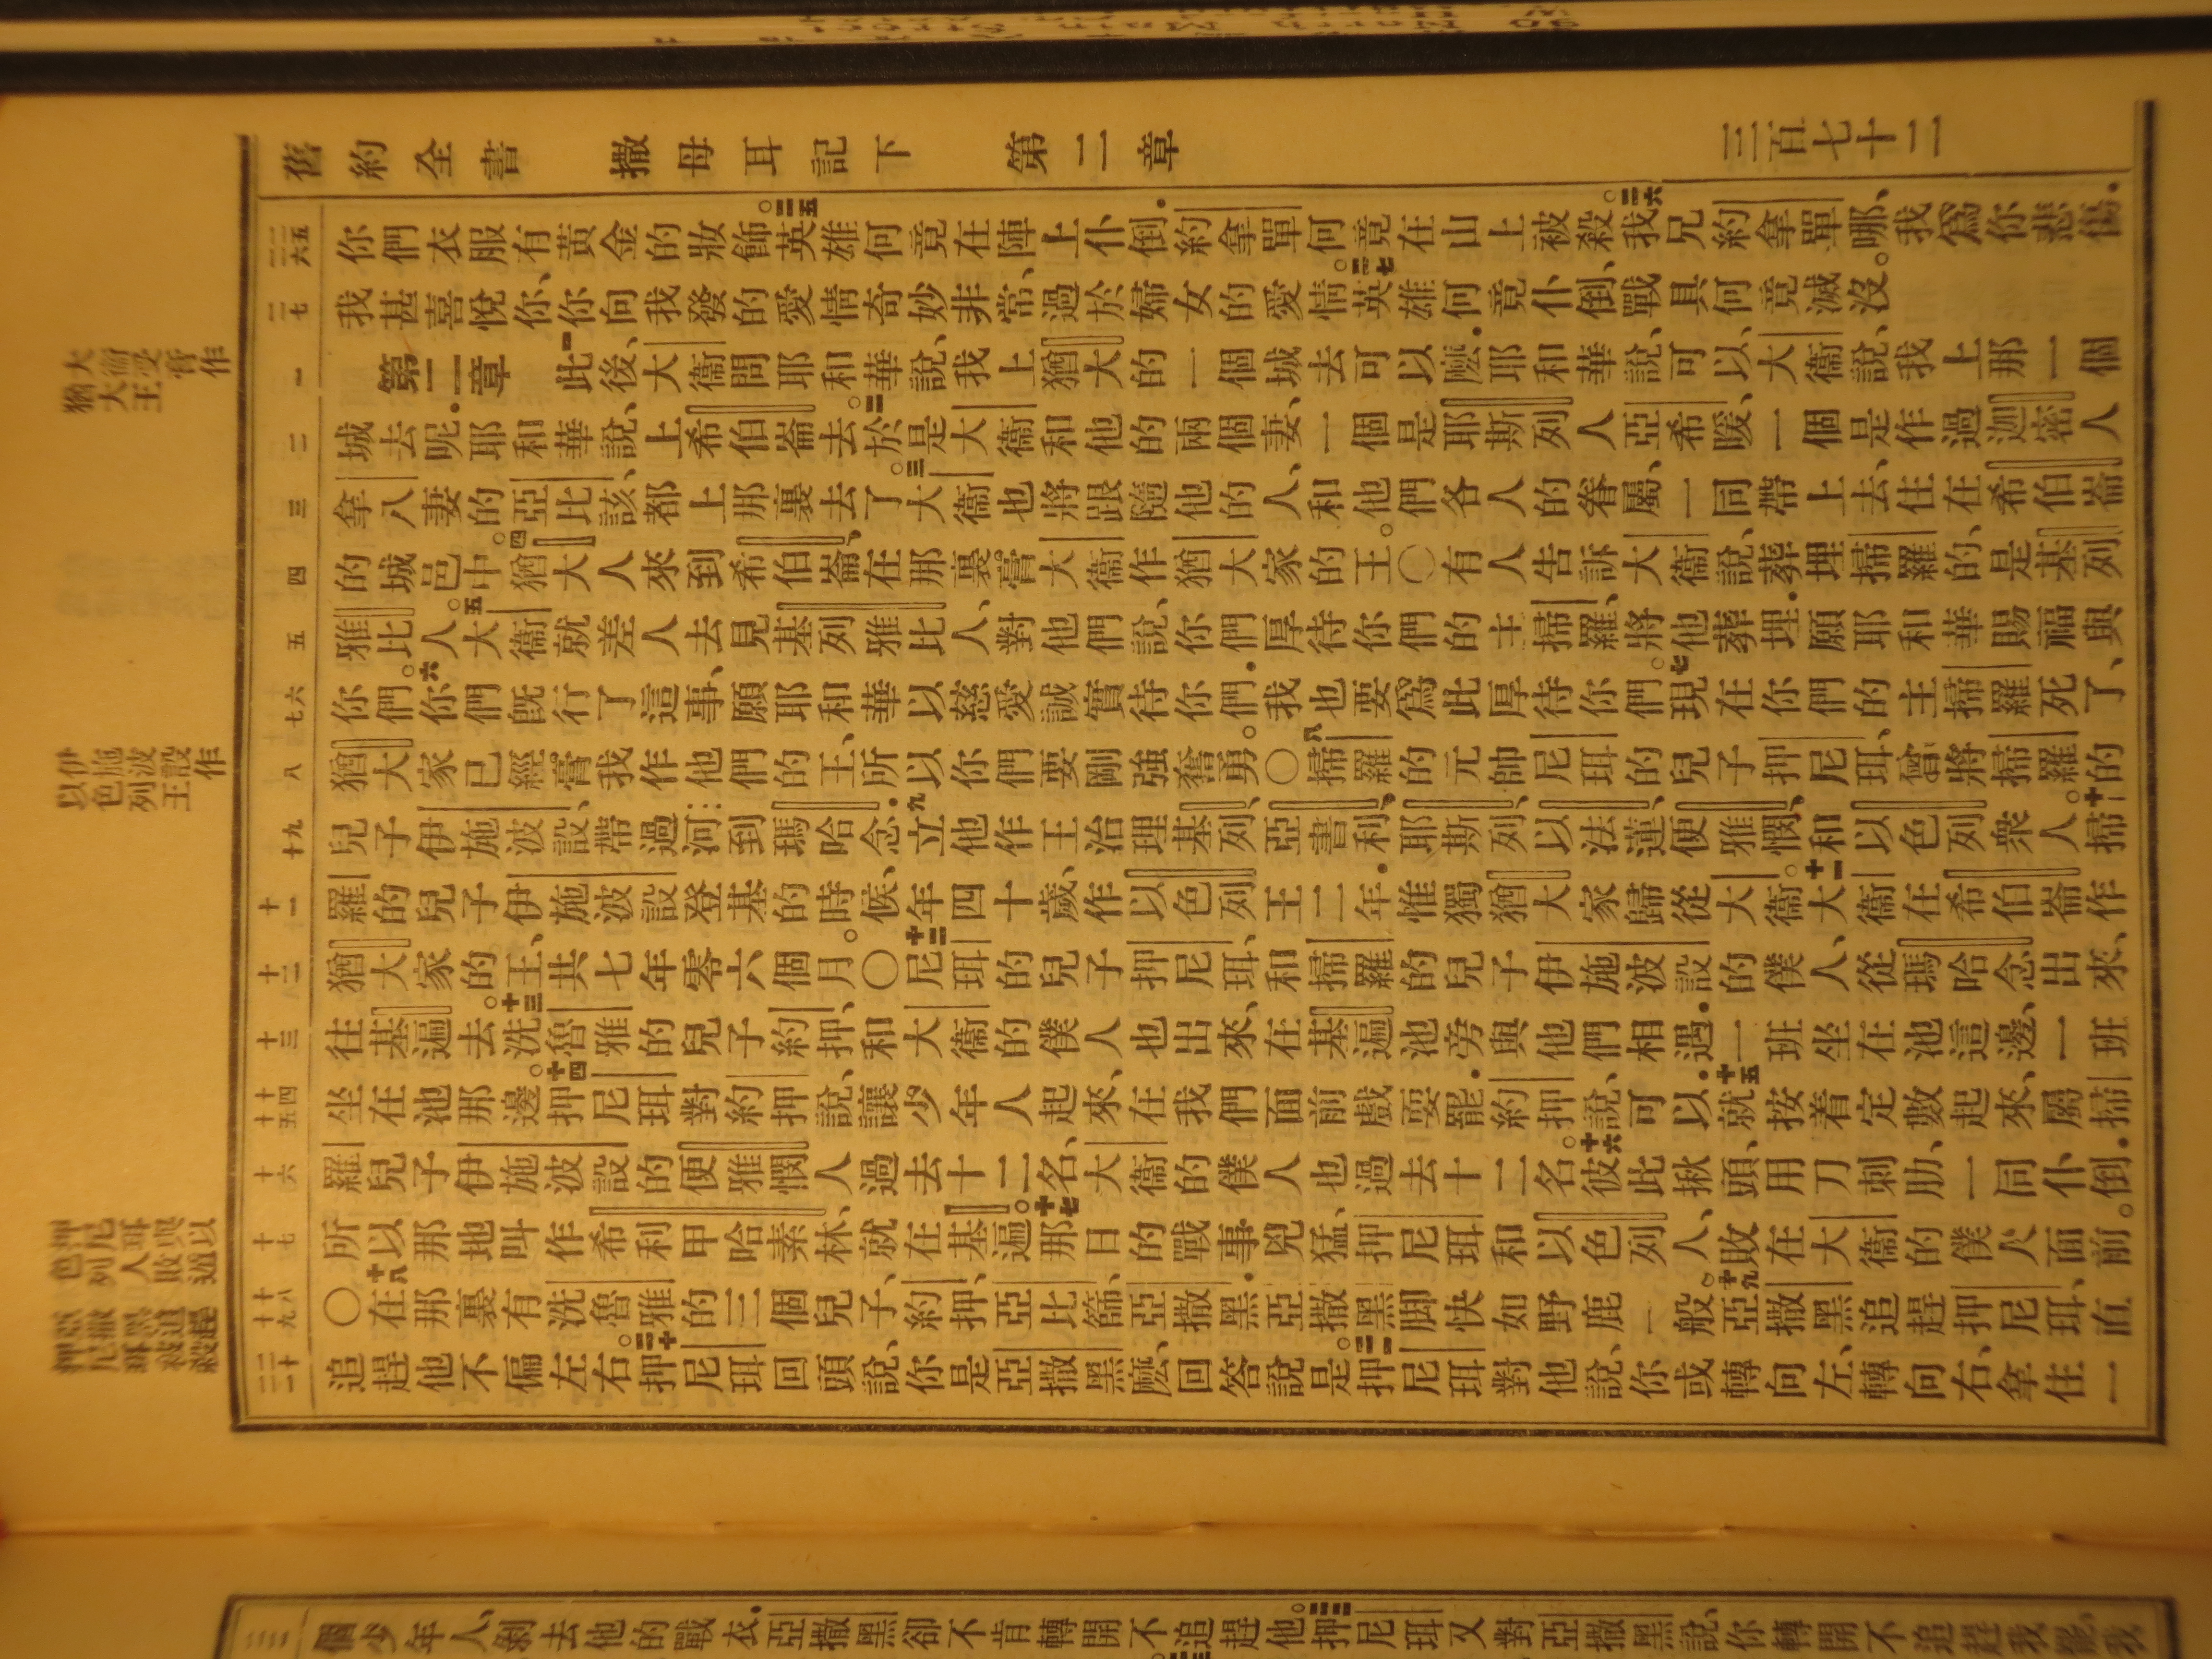 舊約全書　撒母耳記下　第二章　三百七十二
你們衣服有黃金的妝飾。二五英雄何竟在陣上仆倒．約拿單何竟在山上被殺。二六我兄約拿單哪、我爲你悲傷．
我甚喜悅你、你向我發的愛情奇妙非常、過於婦女的愛情。二七英雄何竟仆倒、戰具何竟滅沒。
第二章　一此後、大衞問耶和華說、我上猶大的一個城去可以麽．耶和華說、可以、大衞說、我上那一個
城去呢．耶和華說、上希伯崙去。二於是大衞和他的兩個妻、一個是耶斯列人亞希暖、一個是作過迦密人
拿八妻的亞比該、都上那裏去了。三大衞也將跟隨他的人、和他們各人的眷屬、一同帶上去、住在希伯崙
的城邑中。四猶大人來到希伯崙、在那裏膏大衞作猶大家的王。○有人告訴大衞說、葬埋掃羅的、是基列
雅比人。五大衞就差人去見基列雅比人、對他們說、你們厚待你們的主掃羅、將他葬埋．願耶和華賜福與
你們。六你們旣行了這事、願耶和華以慈愛誠實待你們．我也要爲此厚待你們。七現在你們的主掃羅死了、
猶大家已經膏我作他們的王、所以你們要剛強奮勇。○八掃羅的元帥尼珥的兒子押尼珥、曾將掃羅的
兒子伊施波設、帶過河到瑪哈念．九立他作王、治理基列、亞書利、耶斯列、以法蓮、便雅憫、和以色列衆人。十掃
羅的兒子伊施波設登基的時候、年四十歲、作以色列王二年．惟獨猶大家歸從大衞。十一大衞在希伯崙作
猶大家的王、共七年零六個月。○十二尼珥的兒子押尼珥、和掃羅的兒子伊施波設的僕人、從瑪哈念出來、
往基遍去。十三洗魯雅的兒子約押、和大衞的僕人也出來、在基遍池旁與他們相遇．一班坐在池這邊、一班
坐在池那邊。十四押尼珥對約押說、讓少年人起來、在我們面前戲耍罷．約押說、可以．十五就按着定數起來、屬掃
羅兒子伊施波設的便雅憫人過去十二名、大衞的僕人也過去十二名。十六彼此揪頭、用刀刺肋、一同仆倒．
所以那地叫作希利甲哈素林、就在基遍。十七那日的戰事兇猛、押尼珥和以色列人、敗在大衞的僕人面前。
○十八在那裏有洗魯雅的三個兒子、約押、亞比篩、亞撒黑．亞撒黑脚快如野鹿一般。十九亞撒黑追趕押尼珥、一直
追趕他不偏左右。二十押尼珥回頭說、你是亞撒黑麽、回答說是。二一押尼珥對他說、你或轉向左、轉向右、拿住一
二五
二六
二七
一
二
三
四
五
六
七
八
九
十
十一
十二
十三
十四
十五
十六
十七
十八
十九
二十
二一
大衞受膏作
猶大王
伊施波設作
以色列王
押尼珥與以
色列人敗遁
亞撒黑追趕
押尼珥被殺
個少年人、剝去他的戰衣．亞撒黑卻不肯轉開不追趕他。二二押尼珥又對亞撒黑說、你轉開不追趕我罷、我